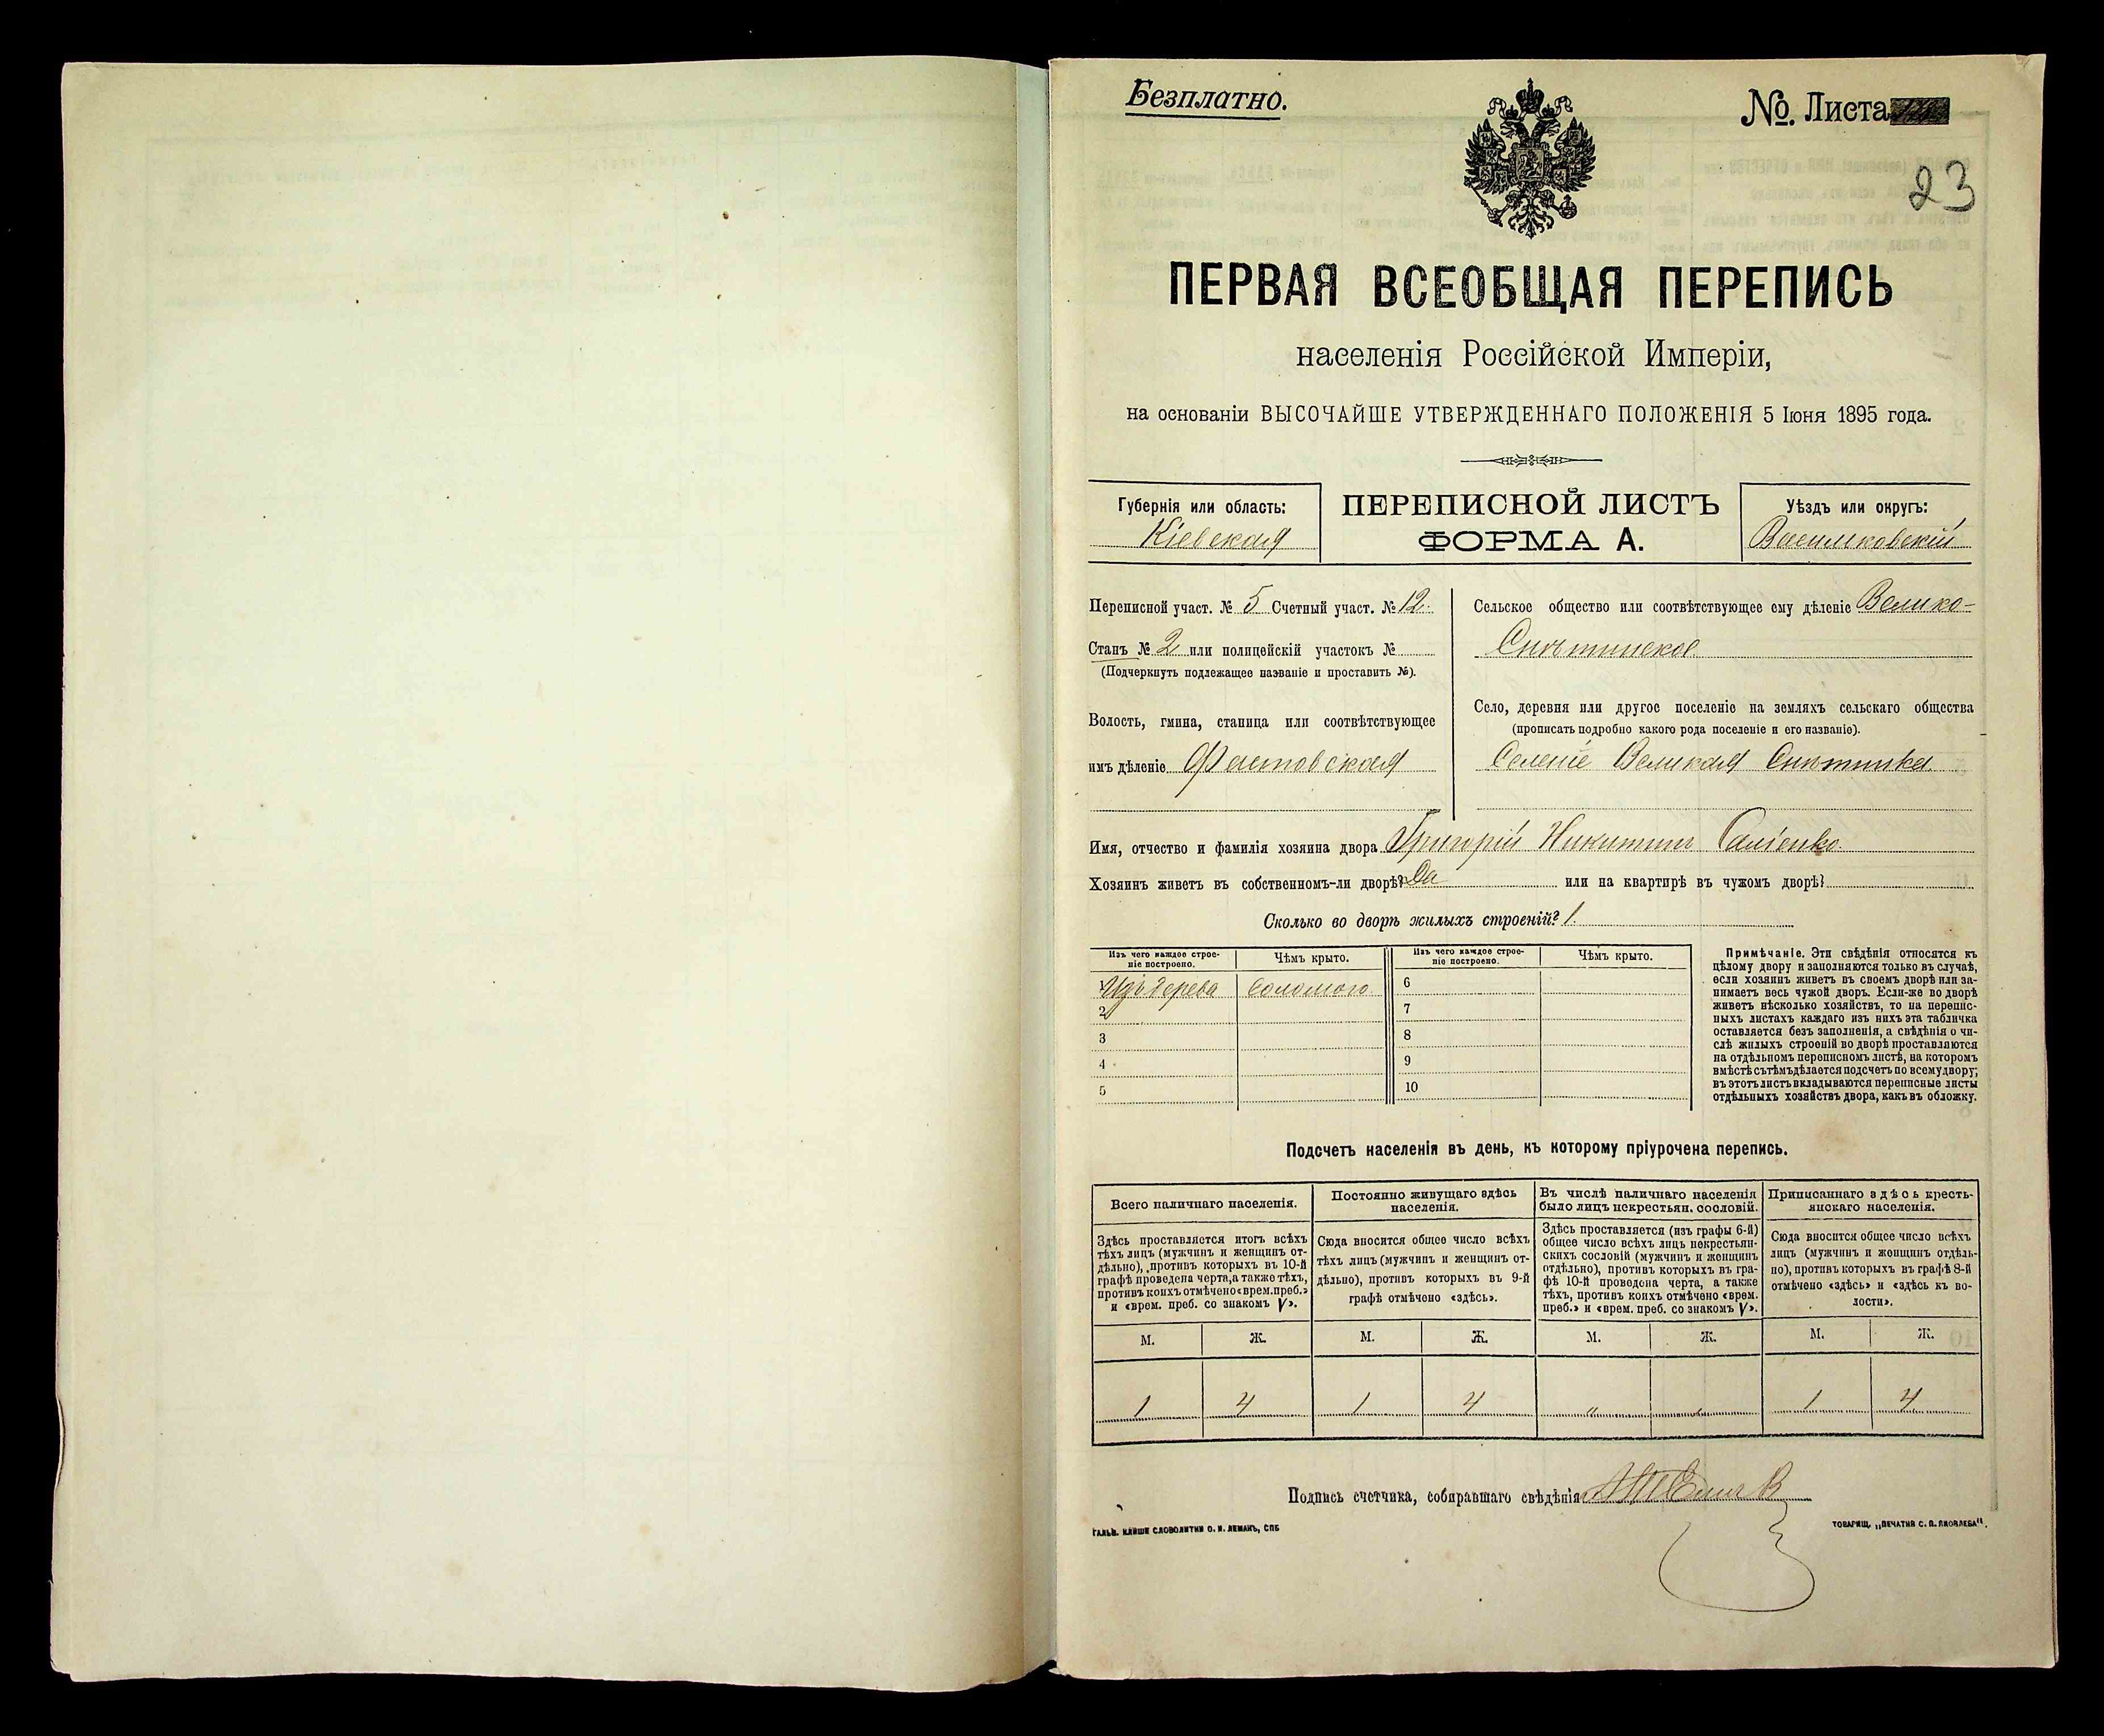 Безплатно.
№. Листа
23
ПЕРВАЯ ВСЕОБЩАЯ ПЕРЕПИСЬ
населенія Россійской Имперіи,
на основаніи ВЫСОЧАЙШЕ УТВЕРЖДЕННАГО ПОЛОЖЕНІЯ 5 Іюня 1895 года.
Губернія или область:
Кіевская
ПЕРЕПИСНОЙ ЛИСТЪ
ФОРМА А.
Уѣздъ или округъ:
Васильковскій
Переписной участ. № 5 Счетный участ. № 12.
Станъ № 2 или полицейскій участокъ №
(Подчеркнуть подлежащее названіе и проставить №).
Волость, гмина, станица или соотвѣтствующее
имъ дѣленіе Фастовская
Сельское общество или соотвѣтствующее ему дѣленіе Велико-
Снѣтинское
Село, деревня или другое поселеніе на земляхъ сельскаго общества
(прописать подробно какого рода поселеніе и его названіе).
Селеніе Великая Снѣтинка
Имя, отчество и фамилія хозяина двора Григорій Никитинъ Саліенко
Хозяинъ живетъ въ собственномъ-ли дворѣ? Да или на квартирѣ въ чужомъ дворѣ?
Сколько во дворѣ жилыхъ строеній? 1.
Изъ чего каждое строе-
ніе построено.
Чѣмъ крыто.
Изъ чего каждое строе-
ніе построено.
Чѣмъ крыто.
Изъ дерева соломою 6
2 7
3 8
4 9
5 10
Примѣчаніе. Эти свѣдѣнія относятся къ
цѣлому двору и заполняются только въ случаѣ,
если хозяинъ живетъ въ своемъ дворѣ или за-
нимаетъ весь чужой дворъ. Если-же во дворѣ
живетъ нѣсколько хозяйствъ, то на перепис-
ныхъ листахъ каждаго изъ нихъ эта табличка
оставляется безъ заполненія, а свѣдѣнія о чи-
слѣ жилыхъ строеній во дворѣ проставляются
на отдѣльномъ переписномъ листѣ, на которомъ
вмѣстѣ съ тѣмъ дѣлается подсчетъ по всему двору;
въ этотъ листъ вкладываются переписные листы
отдѣльныхъ хозяйствъ двора, какъ въ обложку.
Подсчетъ населенія въ день, къ которому пріурочена перепись.
Всего наличнаго населенія.
Здѣсь проставляется итогъ всѣхъ
тѣхъ лицъ (мужчинъ и женщинъ от-
дѣльно), противъ которыхъ въ 10-й
графѣ проведена черта, а также тѣхъ,
противъ коихъ отмѣчено «врем. преб.»
и «врем. преб. со знакомъ V».
М. Ж.
1 4
Постоянно живущаго здѣсь
населенія.
Сюда вносится общее число всѣхъ
тѣхъ лицъ (мужчинъ и женщинъ от-
дѣльно), противъ которыхъ въ 9-й
графѣ отмѣчено «здѣсь».
М. Ж.
1 4
Въ числѣ наличнаго населенія
было лицъ некрестьян. сословій.
Здѣсь проставляется (изъ графы 6-й)
общее число всѣхъ лицъ некрестьян-
скихъ сословій (мужчинъ и женщинъ
отдѣльно), противъ которыхъ въ гра-
фѣ 10-й проведена черта, а также
тѣхъ, противъ коихъ отмѣчено «врем.
преб.» и «врем. преб. со знакомъ V».
М. Ж.
" "
Приписаннаго здѣсь кресть-
янскаго населенія.
Сюда вносится общее число всѣхъ
лицъ (мужчинъ и женщинъ отдѣль-
но), противъ которыхъ въ графѣ 8-й
отмѣчено «здѣсь» и «здѣсь къ во-
лости».
М. Ж.
1 4
Подпись счетчика, собиравшаго свѣдѣнія
ГАЛЬВ. КЛИШЕ СЛОВОЛИТНИ О. И. ЛЕМАНЪ, СПБ
ТОВАРИЩ. „ПЕЧАТНЯ С. П. ЯКОВЛЕВА".